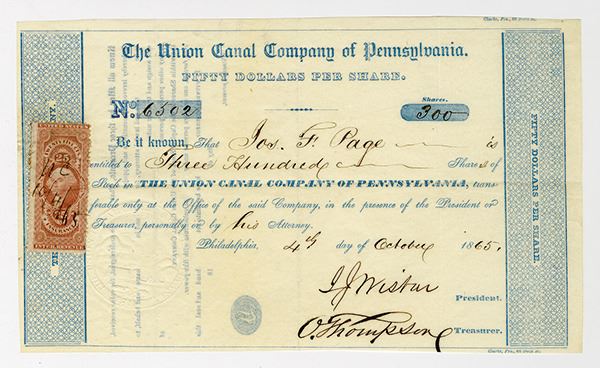 The Union Canal Company of Pennsylvania.
FIFTY DOLLARS PER SHARE.
No. 6502
Shares.
300
Be it known, That Jos. F. Page is
entitled to Three Hundred Shares of
Stock in THE UNION CANAL COMPANY OF PENNSYLVANIA, trans-
ferable only at the Office of the said Company, in the presence of the President or
Treasurer, personally or by his Attorney.
Philadelphia, 4th day of October 1865.
I J Wistar
President.
O. Thompson
Treasurer.
FIFTY DOLLARS PER SHARE.
25